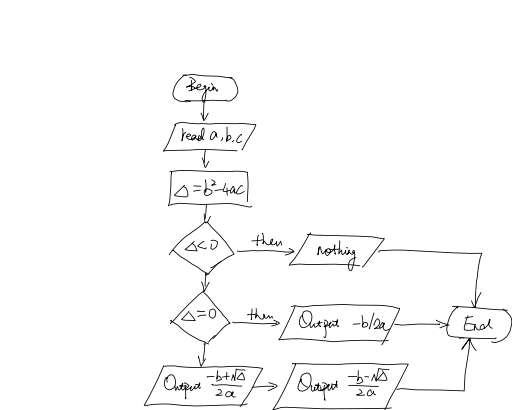 Begin
read a, b, c
Δ = b²-4ac
Δ<0
then
nothing
Δ=0
then
Output -b/2a
End
Output (-b+√Δ)/2a
Output (-b-√Δ)/2a